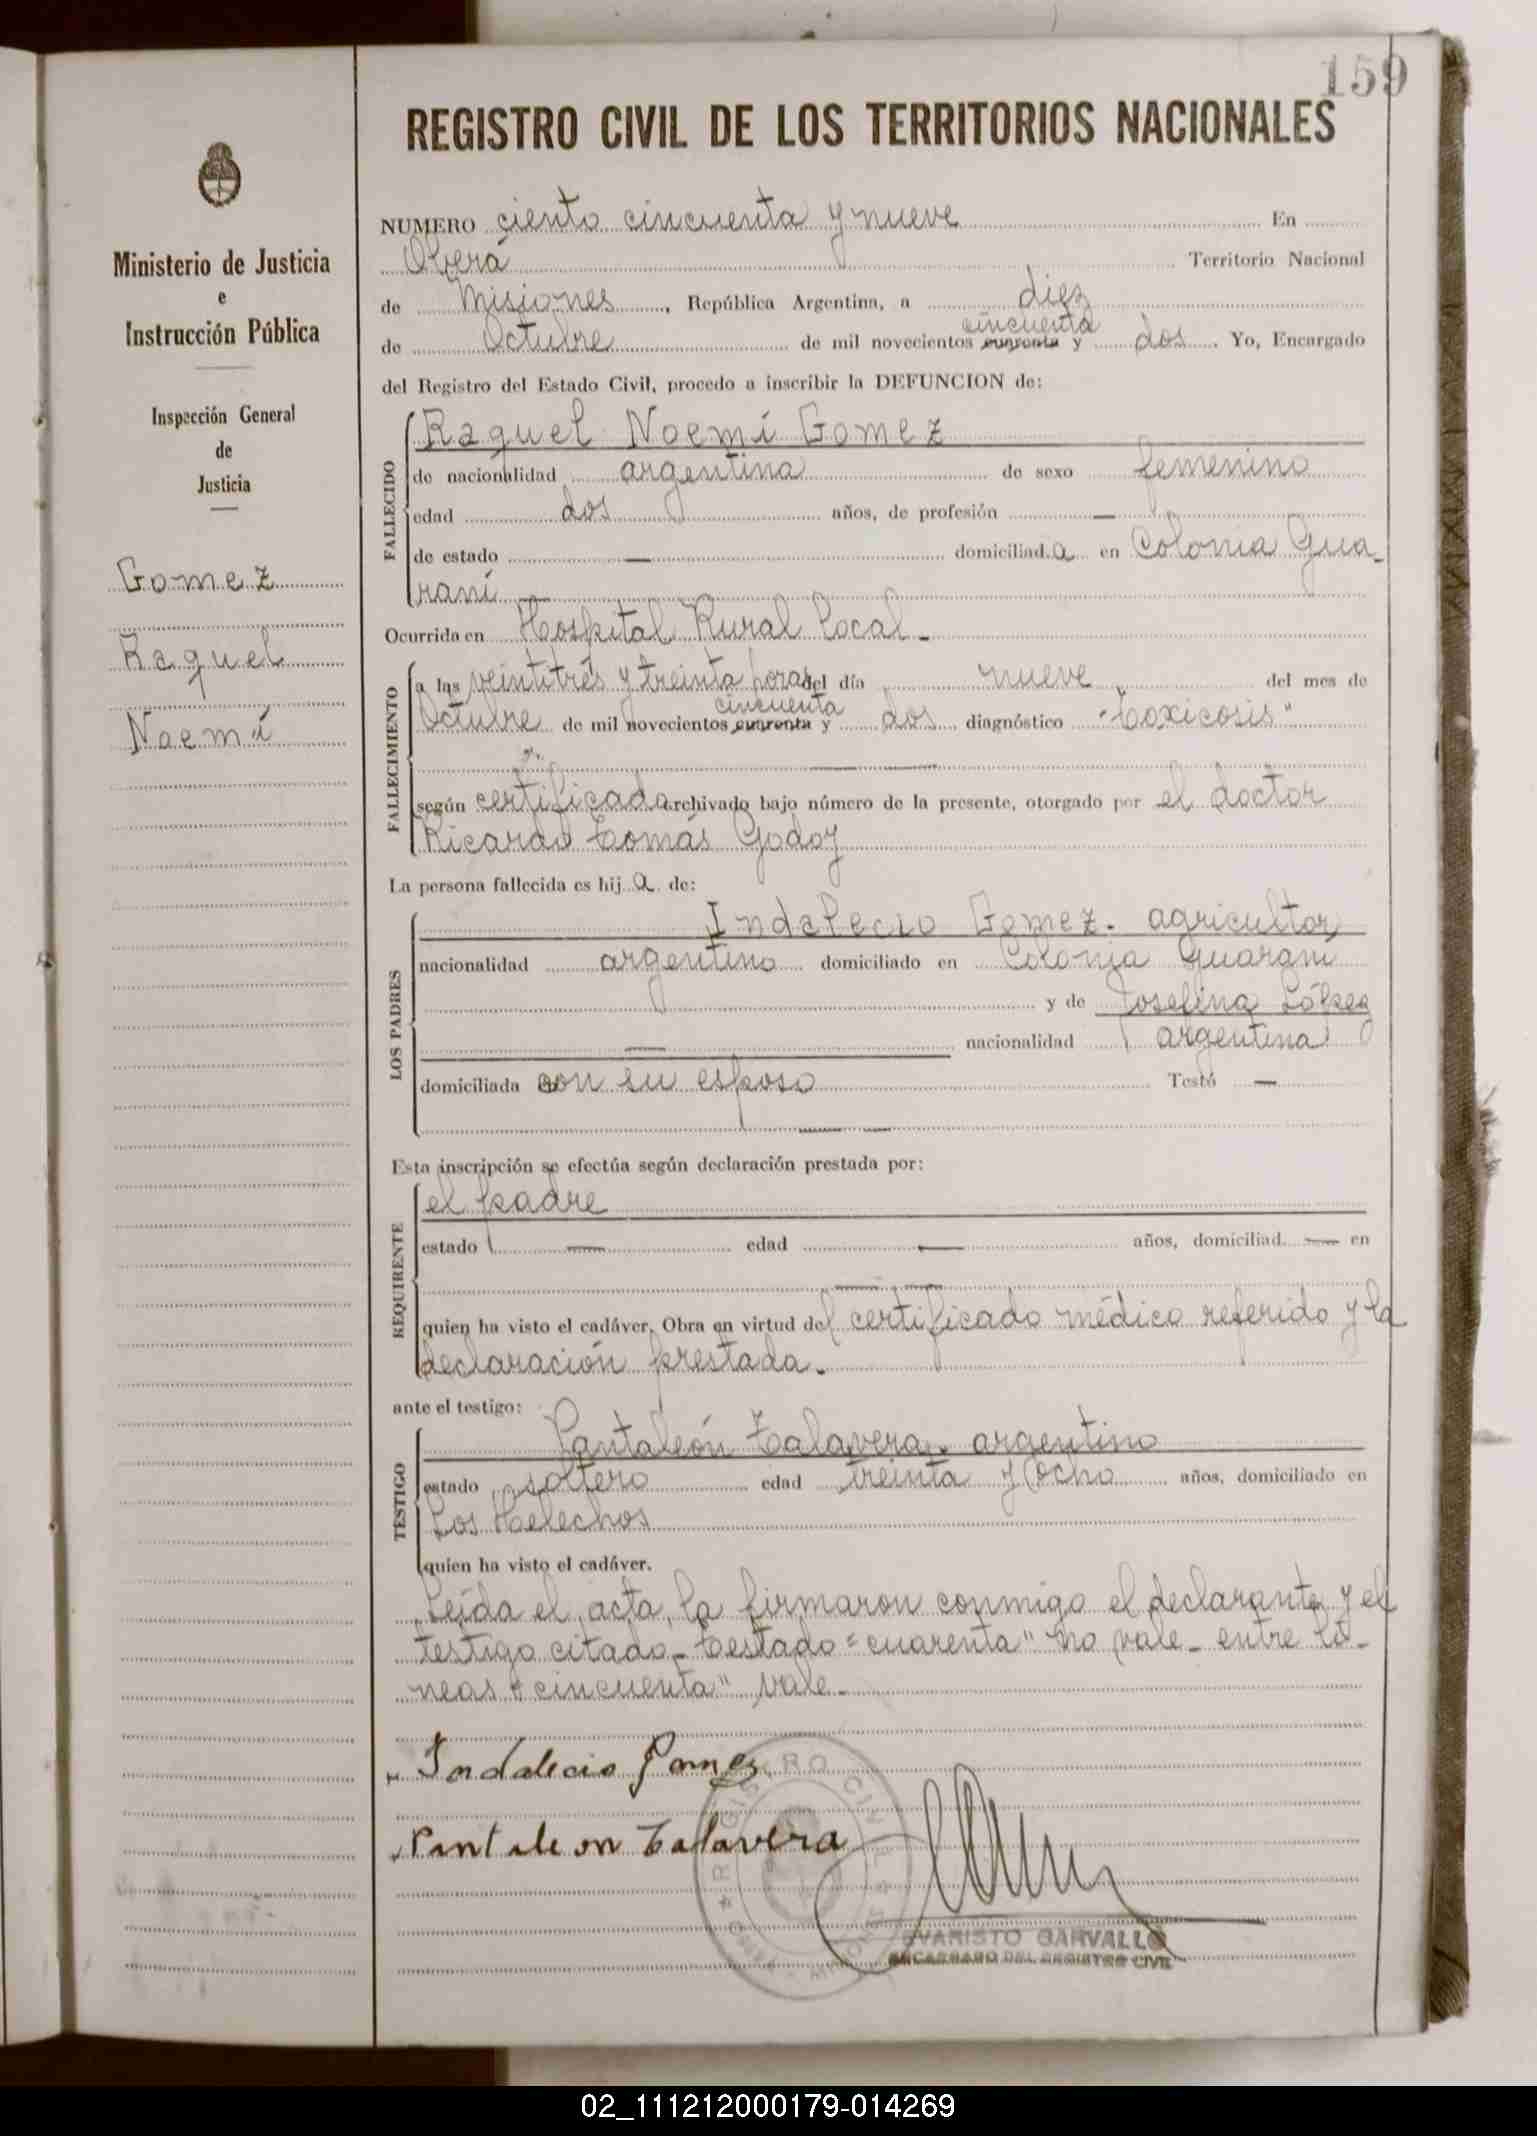 159
REGISTRO CIVIL DE LOS TERRITORIOS NACIONALES
Ministerio de Justicia
e
Instrucción Pública
Inspección General
de
Justicia
Gomez
Raquel
Noemí
NUMERO ciento cincuenta y nueve En
Oberá Territorio Nacional
de Misiones, República Argentina, a diez
cincuenta
de Octubre de mil novecientos cuarenta y dos. Yo, Encargado
del Registro del Estado Civil, procedo a inscribir la DEFUNCION de:
FALLECIDO
Raquel Noemí Gomez
de nacionalidad argentina de sexo femenino
edad dos años, de profesión —
de estado — domiciliada en Colonia Gua-
raní
Ocurrida en Hospital Rural local-
FALLECIMIENTO
a las veintitrés y treinta horas del día nueve del mes de
cincuenta
Octubre de mil novecientos cuarenta y dos diagnóstico "toxicosis"
según certificado archivado bajo número de la presente, otorgado por el doctor
Ricardo Tomás Godoy
La persona fallecida es hija de:
LOS PADRES
Indalecio Gomez. agricultor
nacionalidad argentino domiciliado en Colonia Guarani
y de Josefina López
— nacionalidad argentina
domiciliada con su esposo Testó —
Esta inscripción se efectúa según declaración prestada por:
REQUIRENTE
el padre
estado — edad — años, domiciliad — en
quien ha visto el cadáver. Obra en virtud del certificado médico referido y la
declaración prestada.
ante el testigo:
TESTIGO
Pantaleón Talavera. argentino
estado soltero edad treinta y ocho años, domiciliado en
Los Helechos
quien ha visto el cadáver.
Leída el acta, la firmaron conmigo el declarante y el
testigo citado_ Testado "cuarenta" no vale_ entre lí-
neas "cincuenta" vale_
Indalecio Gomez
Pantaleon Talavera
REGISTRO CIVIL
EVARISTO CARVALLO
ENCARGADO DEL REGISTRO CIVIL
02_111212000179-014269